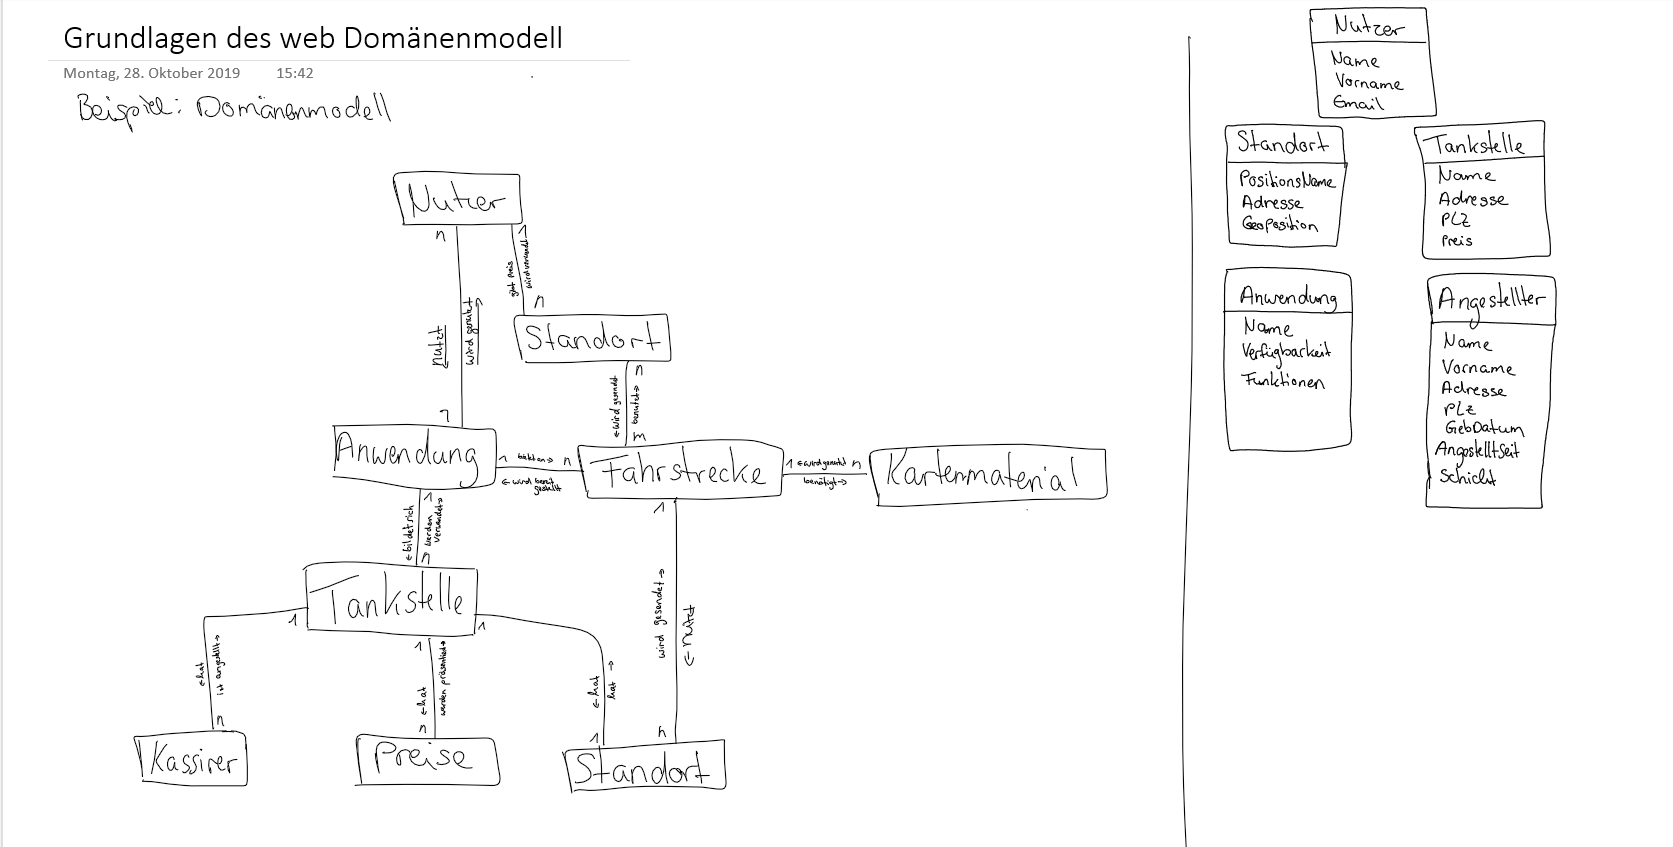 Grundlagen des web Domänenmodell
Montag, 28. Oktober 2019 15:42
Beispiel: Domänenmodell
Nutzer
n
1
gibt preis
wird verwendet
n
Standort
nutzt
wird genutzt
n
wird gesendet
benutzt
1
m
Anwendung
1
n
wird bereit
gestellt
Fahrstrecke
1
wird genutzt
n
benötigt
Kartenmaterial
1
bildet sich
werden
verwendet
n
1
wird gesendet
nutzt
n
Tankstelle
1
1
1
hat
ist angestellt
n
hat
werden präsentiert
n
hat
hat
1
Kassirer
Preise
Standort
Nutzer
Name
Vorname
Email
Standort
PositionsName
Adresse
GeoPosition
Tankstelle
Name
Adresse
PLZ
Preis
Anwendung
Name
Verfügbarkeit
Funktionen
Angestellter
Name
Vorname
Adresse
PLZ
GebDatum
AngestelltSeit
Schicht